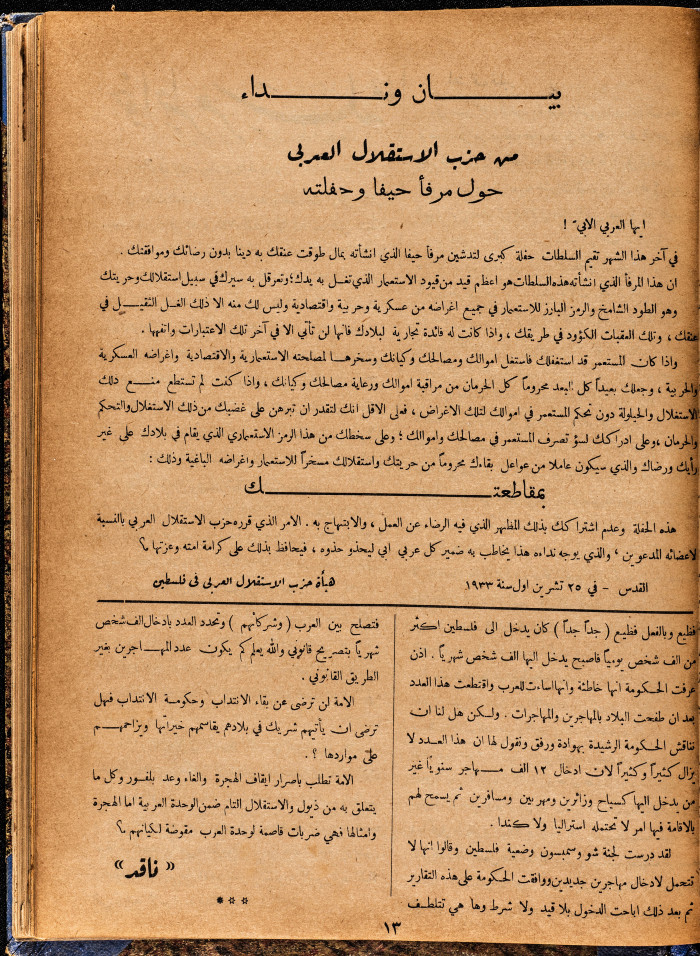 بيــــــان ونــــــداء
من حزب الاستقلال العربي
حول مرفأ حيفا وحفلته
ايها العربي الابيّ !
في آخر هذا الشهر تقيم السلطات حفلة كبرى لتدشين مرفأ حيفا الذي انشأته بمال طوقت عنقك به دينا بدون رضائك وموافقتك .
ان هذا المرفأ الذي انشأته هذه السلطات هو اعظم قيد من قيود الاستعمار الذي تغل به يدك ؛ وتعرقل به سيرك في سبيل استقلالك وحريتك
وهو الطود الشامخ والرمز البارز للاستعمار في جميع اغراضه من عسكرية وحربية واقتصادية وليس لك منه الا ذلك الغل الثقيــل في
عنقك ، وتلك العقبات الكؤود في طريقك ، واذا كانت له فائدة تجارية لبلادك فانها لن تأتي الا في آخر تلك الاعتبارات واتفهها .
واذا كان المستعمر قد استغفلك فاستغل اموالك ومصالحك وكيانك وسخرها لمصلحته الاستعمارية والاقتصادية واغراضه العسكرية
والحربية ، وجعلك بعيداً كل البعد محروماً كل الحرمان من مراقبة اموالك ورعاية مصالحك وكيانك ، واذا كنت لم تستطع منــع ذلك
الاستغلال والحيلولة دون تحكم المستعمر في اموالك لتلك الاغراض ، فعلى الاقل انك لتقدر ان تبرهن على غضبك من ذلك الاستغلال والتحكم
والحرمان ، وعلى ادراكك لسؤ تصرف المستعمر في مصالحك واموالك ؛ وعلى سخطك من هذا الرمز الاستعماري الذي يقام في بلادك على غير
رأيك ورضاك والذي سيكون عاملا من عوامل بقاءك محروماً من حريتك واستقلالك مسخراً للاستعمار واغراضه الباغية وذلك :
بمقاطعتــــــــك
هذه الحفلة وعدم اشتراكك بذلك المظهر الذي فيه الرضاء عن العمل ، والابتهاج به . الامر الذي قرره حزب الاستقلال العربي بالنسبة
لاعضائه المدعوين ، والذي يوجه نداءه هذا يخاطب به ضمير كل عربي ابي ليحذو حذوه ، فيحافظ بذلك على كرامة امته وعزتها ؟
القدس - في ٢٥ تشرين اول سنة ١٩٣٣
هيأة حزب الاستقلال العربي في فلسطين
فظيع وبالفعل فظيع ( جداً جداً ) كان يدخل الى فلسطين اكثر
من الف شخص يومياً فاصبح يدخل اليها الف شخص شهرياً . اذن
عرفت الحكومة انها خاطئة وانها اساءت للعرب واقتطعت هذا العدد
بعد ان طفحت البلاد بالمهاجرين والمهاجرات . ولكن هل لنا ان
نناقش الحكومة الرشيدة بهوادة ورفق ونقول لها ان هذا العدد لا
يزال كثيراً وكثيراً لان ادخال ١٢ الف مــهاجر سنوياً غير
من يدخل اليها كسياح وزائرين ومهربين ومسافرين ثم يسمح لهم
بالاقامة فيها امر لا تحتمله استراليا ولا كندا .
لقد درست لجنة شو وسمبسون وضعية فلسطين وقالوا انها لا
تتحمل لادخال مهاجرين جديدين ووافقت الحكومة على هذه التقارير
ثم بعد ذلك اباحت الدخول بلا قيد ولا شرط وها هي تتلطــف
فتصلح بين العرب ( وشركائهم ) وتحدد العدد بادخال الف شخص
شهرياً بتصريح قانوني والله يعلم كم يكون عدد المهــاجرين بغير
الطريق القانوني .
الامة لن ترضى عن بقاء الانتداب وحكومة الانتداب فهل
ترضى ان يأتيهم شريك في بلادهم يقاسمهم خيراتها ويزاحمهــم
على مواردها ؟ .
الامة تطلب باصرار ايقاف الهجرة والغاء وعد بلفور وكل ما
يتعلق به من ذيول والاستقلال التام ضمن الوحدة العربية اما الهجرة
وامثالها فهي ضربات قاصمة لوحدة العرب مقوضة لكيانهم ؟
« ناقد »
* * *
١٣